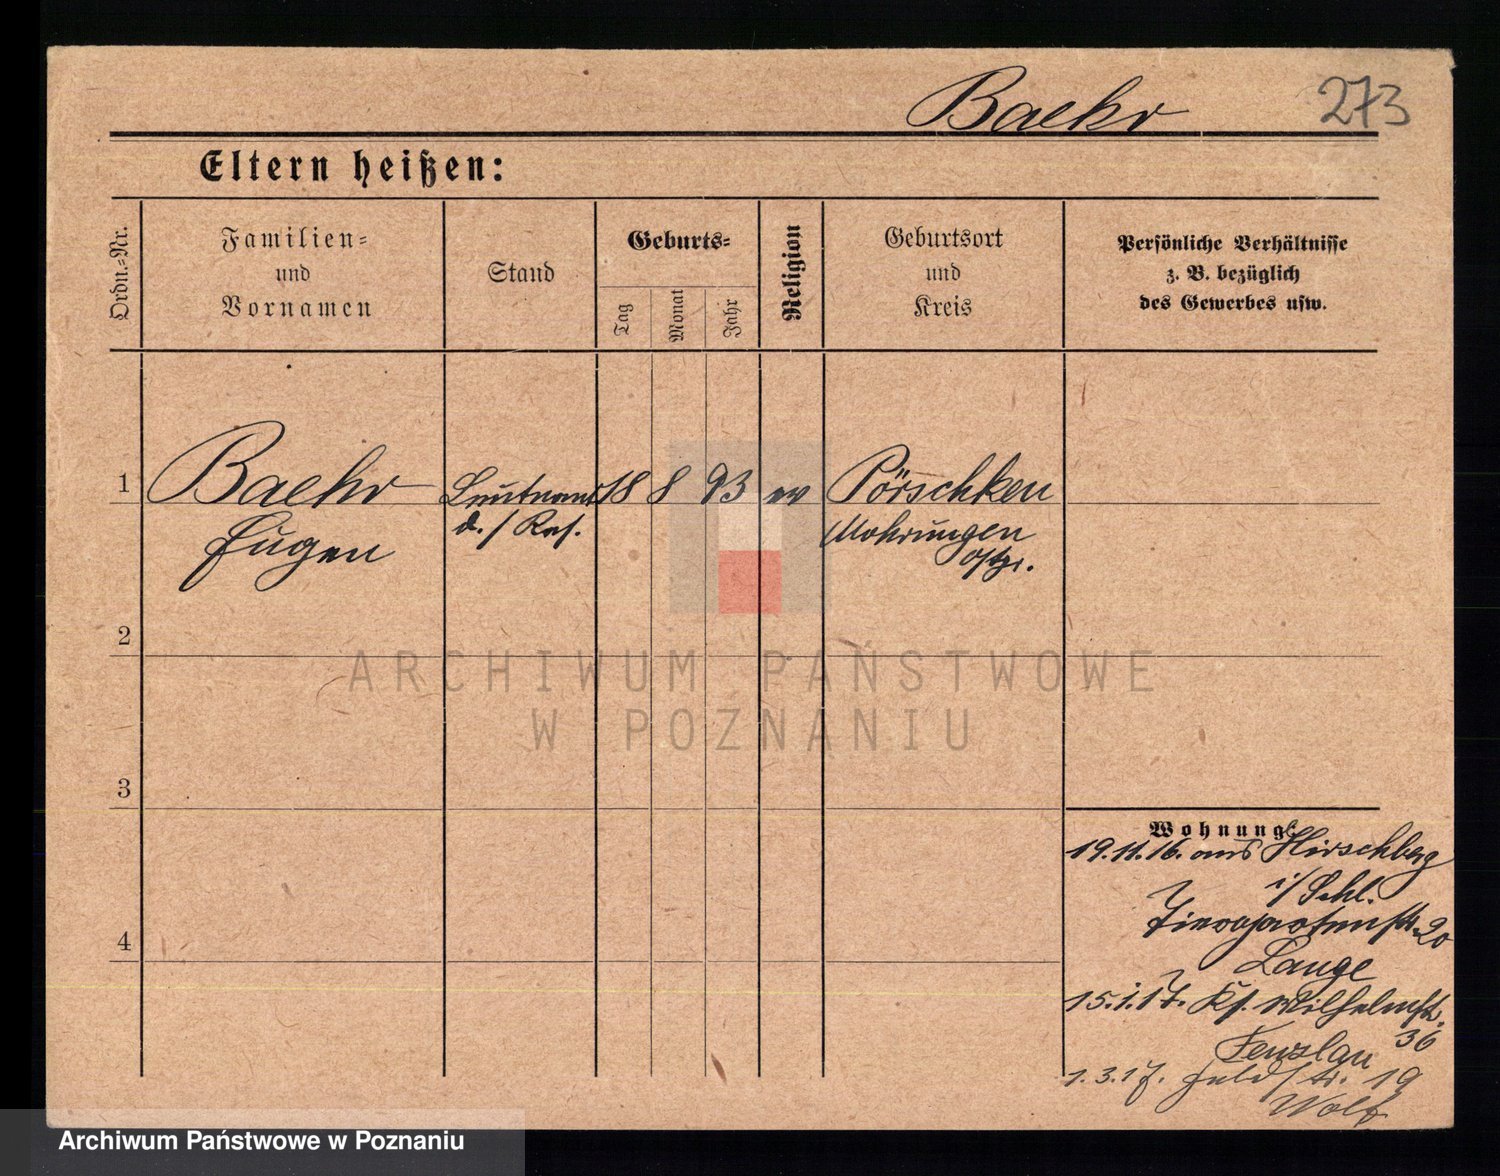 Baehr 273
Eltern heißen:
Ordn.-Nr.
Familien-
und
Vornamen
Stand
Geburts-
Tag
Monat
Jahr
Religion
Geburtsort
und
Kreis
Persönliche Verhältnisse
z. B. bezüglich
des Gewerbes usw.
1 Baehr Leutnant 18 8 93 ev Pörschken
Eugen d./Res. Mohrungen
Ostpr.
2
3
4
Wohnung:
19.11.16. aus Hirschberg
i/Schl.
Tiergartenstr. 20
Lange
15.1.17. Ks. Wilhelmstr.
36
Fenslau
1.3.17. Feldstr. 19
Wolf
ARCHIWUM PAŃSTWOWE
W POZNANIU
Archiwum Państwowe w Poznaniu